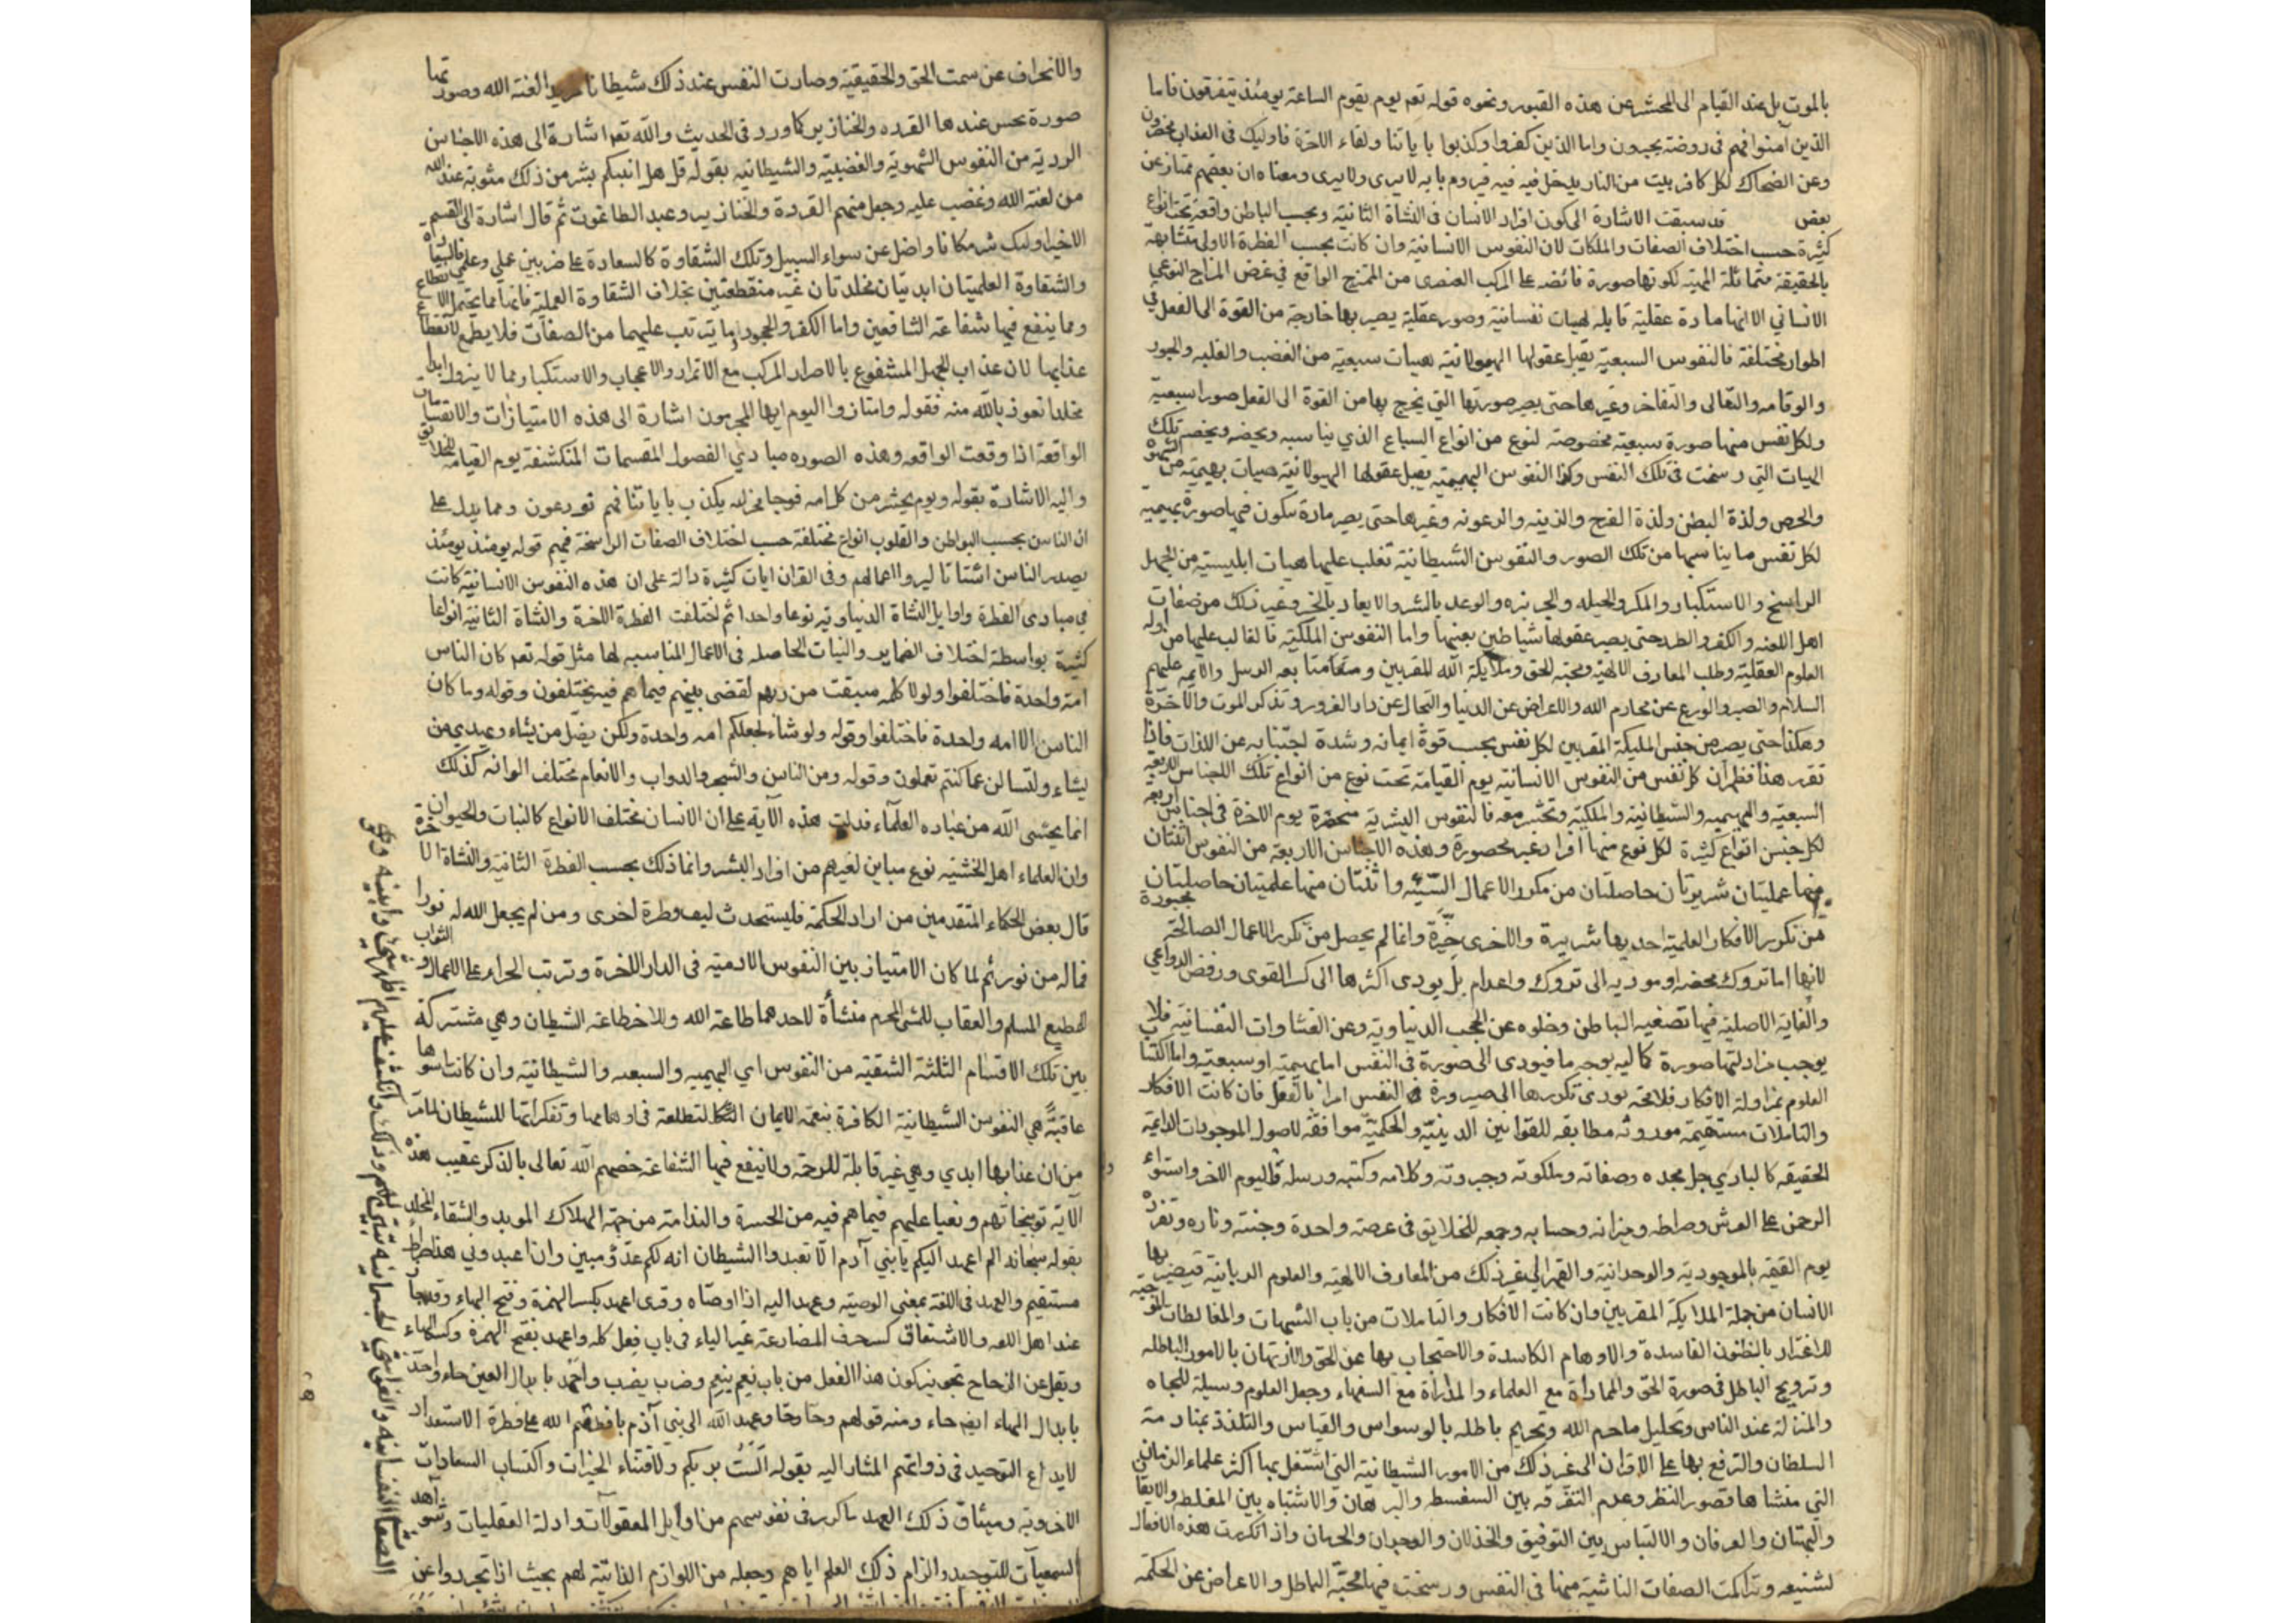 بالموت بل عند القيام الى المحشر عن هذه القبور ونحوه قوله تعم يوم يقوم الساعة يومئذ يتفرقون فاما
الذين آمنوا فهم فى روضة يحبرون واما الذين كفروا وكذبوا باياتنا ولقاء الاخرة فاوليك فى العذاب محضرون
وعن الضحاك لكل كافر بيت من النار يدخل فيه فيردم بابه لا يرى ولا يرى ومعناه ان بعضهم ممتاز عن
بعض قد سبقت الاشارة الى كون افراد الانسان فى النشاة الثانية وبحسب الباطن واقعة تحت انواع
كثيرة حسب اختلاف الصفات والملكات لان النفوس الانسانية وان كانت بحسب الفطرة الاولى متشابهة
بالحقيقة متماثلة المهية لكونها صورة فائضه على المركب العنصرى من الممتزج الواقع فى عرض المزاج النوعي
الانساني الا انها مادة عقلية قابله لهيات نفسانية وصور عقلية يصير بها خارجة من القوة الى الفعل فى
اطوار مختلفة فالنفوس السبعية يقبل عقولها الهيولانية هيات سبعية من الغضب والغلبه والجور
والتعالى والتفاخر وغيرها حتى يصير صورتها التى يخرج بها من القوة الى الفعل صورا سبعية
ولكل نفس منها صورة سبعية مخصوصة لنوع من انواع السباع الذي يناسبه ويخصه تلك
الهيات التي رسخت فى تلك النفس وكذا النفوس البهيمية يقبل عقولها الهيولانية هيات بهيمية من الشهوة
والحرص ولذة البطن ولذة الفرج والزينه والرعونه وغيرها حتى يصير مادة يتكون فيها صورة بهيمية
لكل نفس ما يناسبها من تلك الصور والنفوس الشيطانية تغلب عليها هيات ابليسية من الجهل
الراسخ والاستكبار والمكر والحيله والجربزه والوعد بالشر والايعاد بالخير وغير ذلك من صفات
اهل اللعنه والكفر والطرد حتى يصير عقولها شياطين بعينها واما النفوس الملكية فالغالب عليها من اوله
العلوم العقلية وطلب المعارف الالهية ومحبة الحق وملايكة الله المقربين ومتابعة الرسل والايمه عليهم
السلام والصبر والورع عن محارم الله والاعراض عن الدنيا والتجافي عن دار الغرور وتذكر الموت والآخرة
وهكذا حتى يصير من جنس المليكة المقربين لكل نفس بحسب قوة ايمانه وشدة اجتنابه عن اللذات فاذا
تقرر هذا فظهر ان كل نفس من النفوس الانسانية يوم القيامة تحت نوع من انواع تلك الاجناس الاربعه
السبعية والبهيميه والشيطانية والملكية وتحشر معه فالنفوس البشرية منحصرة يوم الاخرة فى اجناس اربعه
لكل جنس انواع كثيرة لكل نوع منها افراد غير محصورة وهذه الاجناس الاربعة من النفوس اثنتان
منها عمليتان شريرتان حاصلتان من تكرر الاعمال السيئه واثنتان منها علميتان حاصلتان
من تكرر الافكار العلمية احديها شريرة والاخرى خيرة وانما لم يحصل من تكرر الاعمال الصالحة
لانها اما تروك محضه او موديه الى تروك واعدام بل يودى اكثرها الى كسر القوى ورفض الدواعي
والغاية الاصلية فيها تصفيه الباطن وخلوه عن الحجب الدنياوية وعن الغشاوات النفسانية فلا
يوجب مزاولتها صورة كماليه بوجه ما فيودى الى صورة فى النفس اما بهيمية او سبعية واما اكتساب
العلوم بمزاولة الافكار فلا محة يودى تكررها الى صيرورة فى النفس امرا بالفعل فان كانت الافكار
والتاملات مستقيمة موروثة مطابقه للقوانين الدينية والحكمية موافقة لاصول الموجودات الدايمة
الحقيقه كالباري جل مجده وصفاته وملكوته وجبروته وكلامه وكتبه ورسله واليوم الاخر واستواء
الرحمن على العرش وصراطه وميزانه وحسابه وجمعه للخلايق فى عرصة واحدة وجنته وناره وتفرده
يوم القيمة بالموجودية والوحدانية والقهر الى غير ذلك من المعارف الالهية والعلوم الربانية فيصير بها
الانسان من جملة الملايكة المقربين وان كانت الافكار والتاملات من باب الشبهات والمغالطات الموجبة
للاغترار بالظنون الفاسدة والاوهام الكاسدة والاحتجاب بها عن الحق والارتهان بالامور الباطله
وترويج الباطل فى صورة الحق والمماراة مع العلماء والمداراة مع السفهاء وجعل العلوم وسيلة للجاه
والمنزلة عند الناس وتحليل ما حرم الله وتحريم باطله بالوسواس والقياس والتلذذ بمنادمة
السلطان والترفع بها على الاقران الى غير ذلك من الامور الشيطانية التي اشتغل بها اكثر علماء الزمان
التي منشاها قصور النظر وعدم التفرقه بين السفسطه والبرهان والاشتباه بين المغلطه والايقان
والبهتان والعرفان والالتباس بين التوفيق والخذلان والوجدان والحرمان واذا تكررت هذه الافعال
لشنيعه وتراكمت الصفات الناشية منها فى النفس ورسخت فيها محبة الباطل والاعراض عن الحكمة
والانحراف عن سمت الحق والحقيقية وصارت النفس عند ذلك شيطانا مريدا لعنه الله وصورتها
صورة يحسن عندها القرده والخنازير كما ورد فى الحديث والله تعم اشارة الى هذه الاجناس
الردية من النفوس الشهوية والغضبية والشيطانيه بقوله قل هل انبيكم بشر من ذلك مثوبة عند الله
من لعنه الله وغضب عليه وجعل منهم القردة والخنازير وعبد الطاغوت ثم قال اشارة الى القسم
الاخير اوليك شر مكانا واضل عن سواء السبيل وتلك الشقاوة كالسعادة على ضربين عملي وعلمي فالسعادة
والشقاوة العلميتان ابديتان مخلدتان غير منقطعتين بخلاف الشقاوة العملية فانها مما يحتمل الانقطاع
ومما ينفع فيها شفاعة الشافعين واما الكفر والجحود وما يترتب عليهما من الصفات فلا يطمع لانقطاع
عذابها لان عذاب الجهل المشفوع بالاصرار المركب مع الاغترار والاعجاب والاستكبار مما لا يزول ابدا
مخلدا نعوذ بالله منه فقوله وامتازوا اليوم ايها المجرمون اشارة الى هذه الامتيازات والانقسامات
الواقعة اذا وقعت الواقعه وهذه الصوره مبادي الفصول المقسمات المنكشفة يوم القيامة للخلايق
واليه الاشارة بقوله ويوم يحشر من كل امه فوجا ممن يكذب باياتنا فهم يوزعون ومما يدل على
ان الناس بحسب البواطن والقلوب انواع مختلفة حسب اختلاف الصفات الراسخة فيهم قوله يومئذ يومئذ
يصدر الناس اشتاتا ليروا اعمالهم وفى القران ايات كثيرة دالة على ان هذه النفوس الانسانية كانت
في مبادى الفطرة واوايل النشاة الدنياوية نوعا واحدا ثم اختلفت الفطرة الاخرة والنشاة الثانية انواعا
كثيرة بواسطة اختلاف الضماير والنيات الحاصله فى الاعمال المناسبه لها مثل قوله تعم كان الناس
امة واحدة فاختلفوا ولولا كلمه سبقت من ربهم لقضى بينهم فيما هم فيه يختلفون وقوله وما كان
الناس الا امه واحدة فاختلفوا وقوله ولو شاء لجعلكم امه واحدة ولكن يضل من يشاء ويهدي من
يشاء ولتسالن عما كنتم تعملون وقوله ومن الناس والشجر والدواب والانعام مختلف الوانه كذلك
انما يخشى الله من عباده العلماء فدلت هذه الآية على ان الانسان مختلف الانواع كالنبات والحيوان
وان العلماء اهل الخشية نوع مباين لغيرهم من افراد البشر وانما ذلك بحسب الفطرة الثانية والنشاة الاخرة
قال بعض الحكماء المتقدمين من اراد الحكمة فليستحدث لنفسه فطرة اخرى ومن لم يجعل الله له نورا
فماله من نور ثم لما كان الامتياز بين النفوس الادمية فى الدار الاخرة وترتب الجزاء على الاعمال والثواب
للمطيع المسلم والعقاب للمسئ المجرم منشأة لاحدهما طاعة الله وللاخر طاعة الشيطان وهي مشتركة
بين تلك الاقسام الثلثة الشقية من النفوس اي البهيميه والسبعيه والشيطانية وان كانت اسوها
عاقبة هي النفوس الشيطانية الكافرة بنعمة الايمان المتطلعة فى اوهامها وتفكراتها للشيطان لما مر
من ان عذابها ابدي وهي غير قابلة للرحمة ولا ينفع فيها الشفاعة خصهم الله تعالى بالذكر عقيب هذه
الآية توبيخا لهم ونعيا عليهم فيما هم فيه من الحسرة والندامة من جهة الهلاك الموبد والشقاء المخلد
بقوله سبحانه الم اعهد اليكم يا بني آدم الا تعبدوا الشيطان انه لكم عدو مبين وان اعبدوني هذا صراط
مستقيم والعهد فى اللغة بمعنى الوصية وعهد اليه اذا اوصاه وقرى اعهد بكسر الهمزة وفتح الهاء وقد جاء
عند اهل اللغه والاشتقاق كسر حرف المضارعة غير الياء فى باب فعل كله واعهد بفتح الهمزة وكسر الهاء
ونقل عن الزجاج تجويز كون هذا الفعل من باب نعم ينعم وضرب يضرب واحد بابدال العين حاء واحد
بابدال الهاء ايضا حاء ومنه قولهم دحا دحا وعهد الله الى بني آدم ما فطرهم الله على فطرة الاستعداد
لايداع التوحيد فى ذواتهم المشار اليه بقوله الست بربكم ولاقتناء الخيرات واكتساب السعادات
الاخروية وميثاق ذلك العهد ما كرر فى نفوسهم من اوايل المعقولات وادلة العقليات وشواهد
السمعيات للتوحيد والزام ذلك العلم اياهم وجعله من اللوازم الذاتية لهم بحيث اذا تجردوا عن
الصفات النفسانيه والغواشي الجسمانية تبين لهم ذلك وانكشف عليهم اظهر شئ وابينه